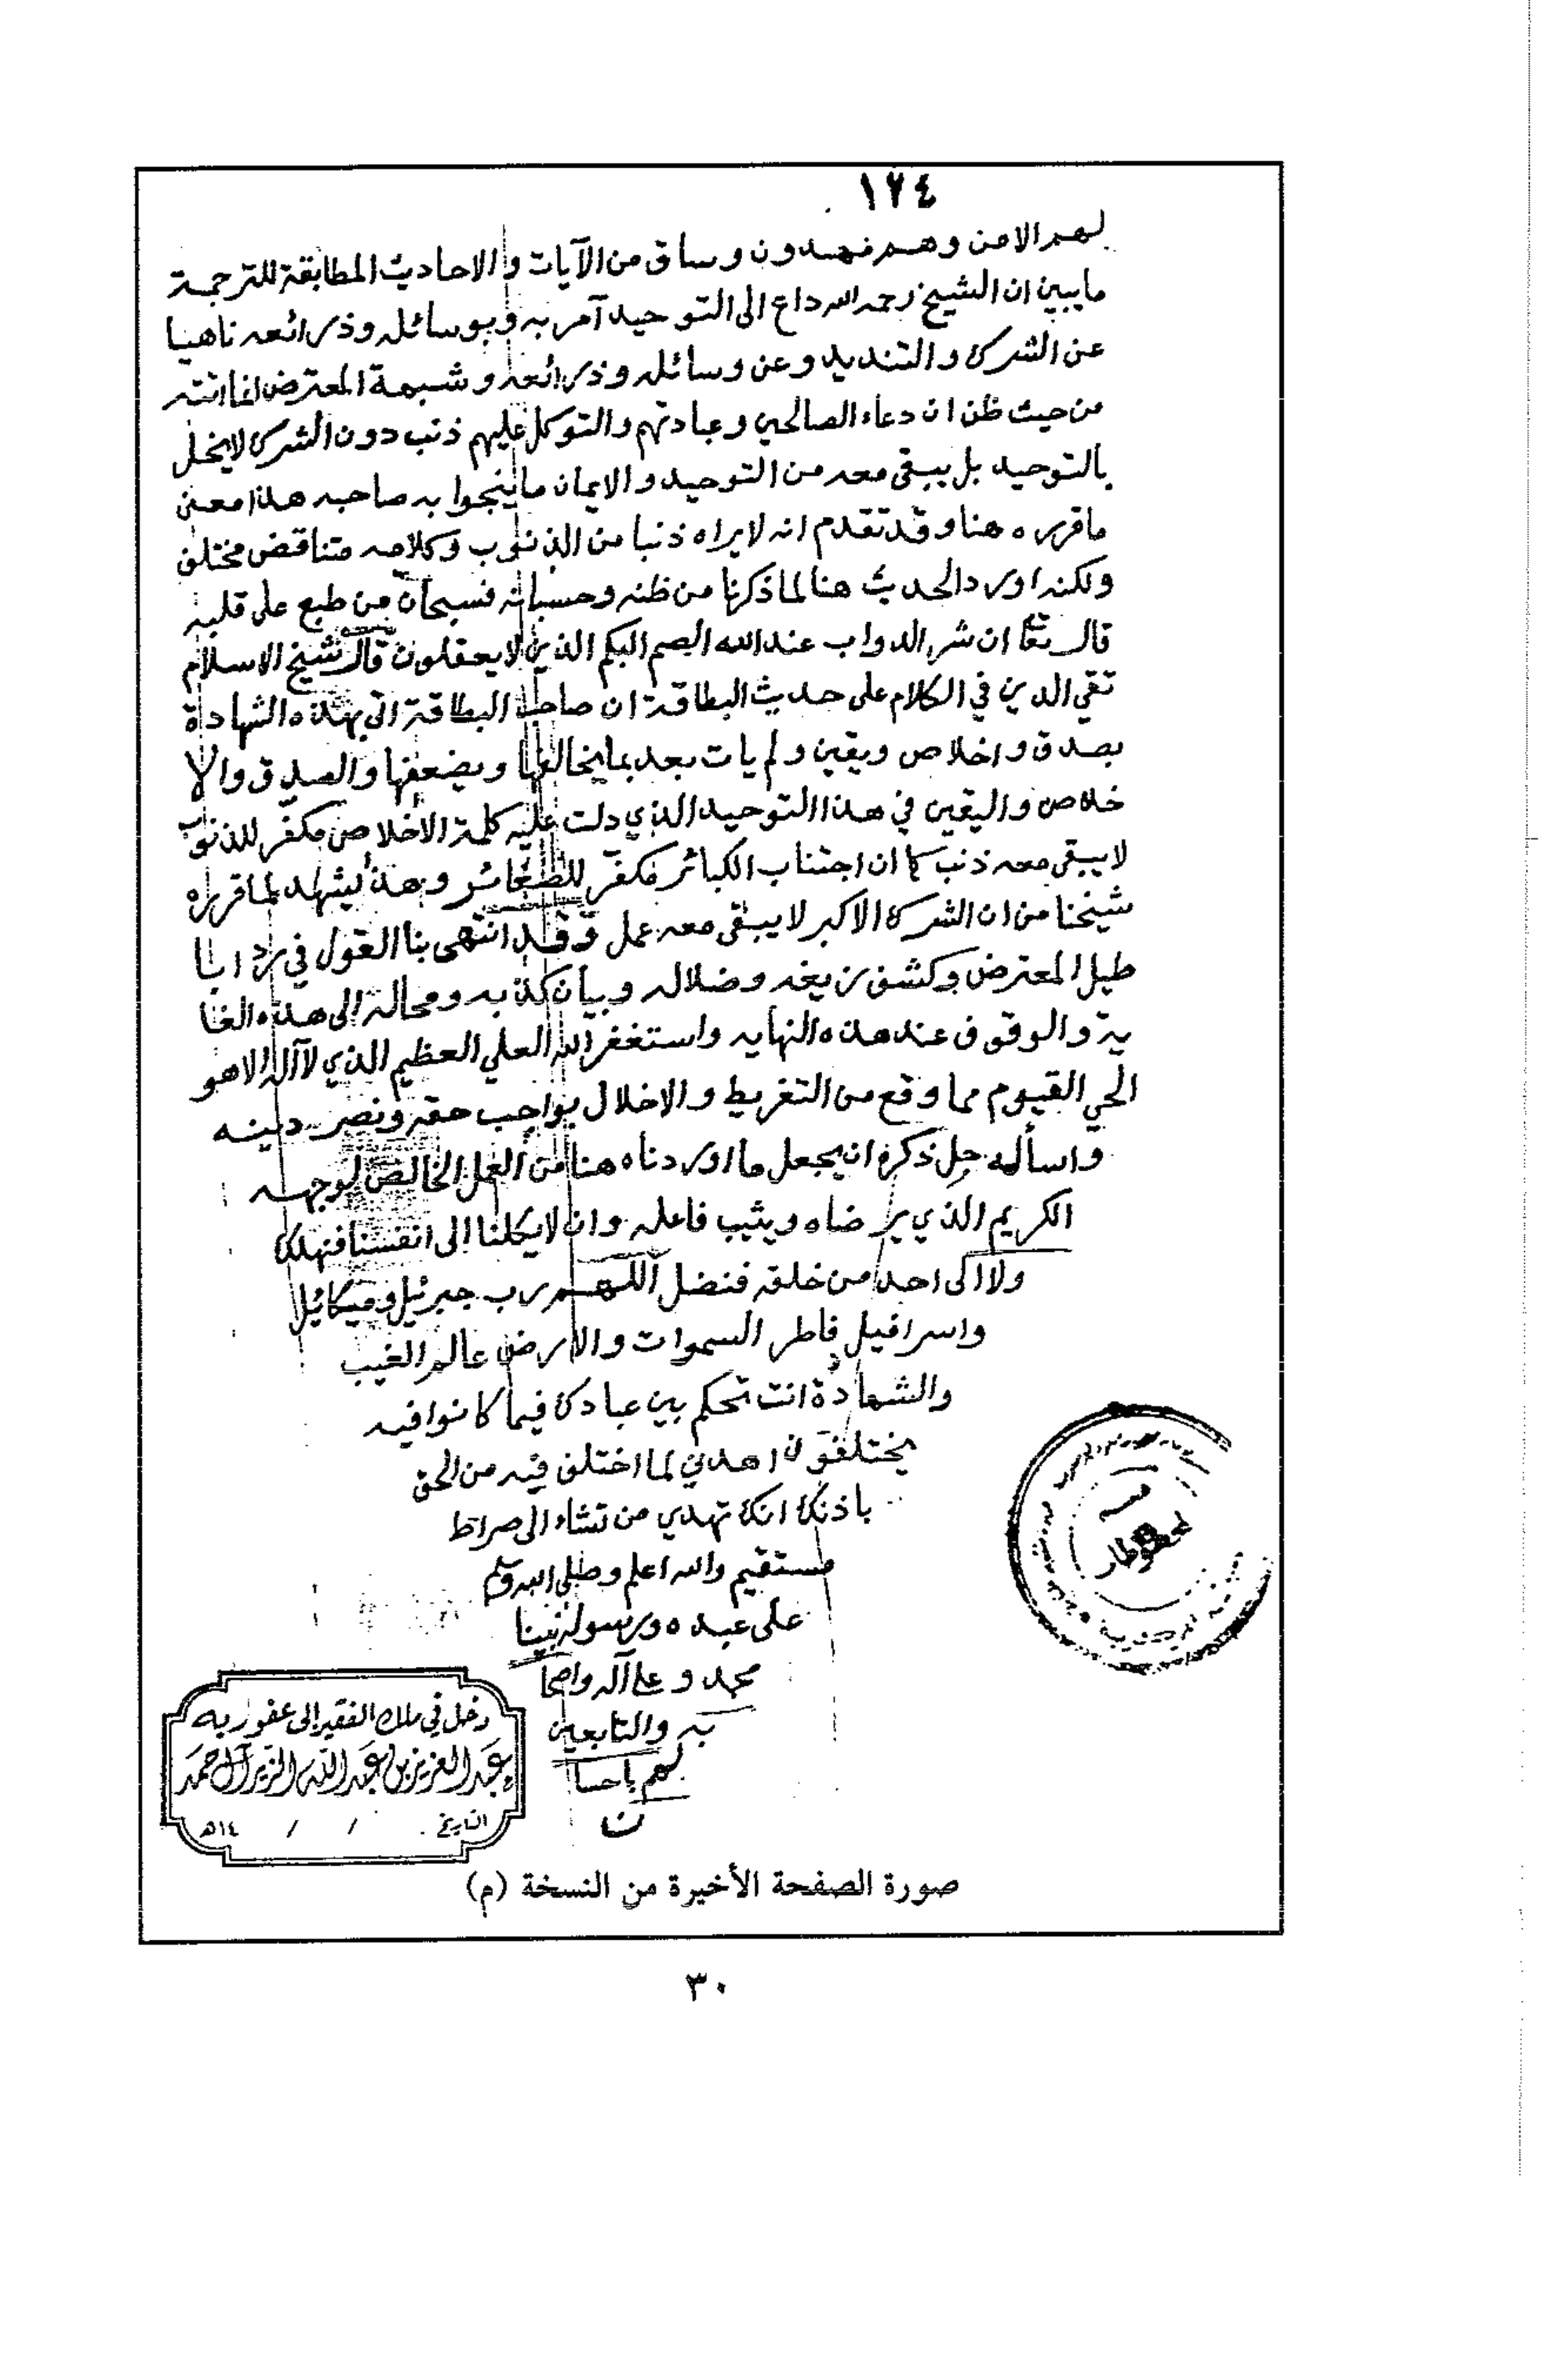 ١٢٤
لهم الامن وهم مهتدون وساق من الآيات والاحاديث المطابقة للترجمة
ما يبين ان الشيخ رحمه الله داع الى التوحيد آمر به وبوسائله وذرائعه ناهيا
عن الشرك والتنديد وعن وسائله وذرائعه وشبهة المعترض انما اتته
من حيث ظن ان دعاء الصالحين وعبادتهم والتوكل عليهم ذنب دون الشرك لا يخل
بالتوحيد بل يبقى معه من التوحيد والايمان ما ينجوا به صاحبه هذا معنى
ما قرره هنا وقد تقدم انه لا يراه ذنبا من الذنوب وكلامه متناقض مختلف
ولكنه اورد الحديث هنا لما ذكرنا من ظنه وحسبانه فسبحان من طبع على قلبه
قال تعا ان شر الدواب عند الله الصم البكم الذين لا يعقلون قال شيخ الاسلام
تقي الدين في الكلام على حديث البطاقة ان صاحب البطاقة اتى بهذه الشهادة
بصدق واخلاص ويقين ولم يات بعد بما يخالفها ويضعفها والصدق والا
خلاص واليقين في هذا التوحيد الذي دلت عليه كلمة الاخلاص مكفر للذنوب
لا يبقى معه ذنب كما ان اجتناب الكبائر مكفر للصغائر وهذا يشهد لما قرره
شيخنا من ان الشرك الاكبر لا يبقى معه عمل وقد انتهى بنا القول في رد ابا
طيل المعترض وكشف زيغه وضلاله وبيان كذبه ومحاله الى هذه الغا
ية والوقوف عند هذه النهايه واستغفر الله العلي العظيم الذي لا آله الا هو
الحي القيوم مما وقع من التفريط والاخلال بواجب حقه ونصر دينه
واسأله جل ذكره ان يجعل ما اوردناه هنا من العمل الخالص لوجهه
الكريم الذي يرضاه ويثيب فاعله وان لا يكلنا الى انفسنا فنهلك
ولا الى احد من خلقه فنضل اللهم رب جبرئيل وميكائيل
واسرافيل فاطر السموات والارض عالم الغيب
والشهادة انت تحكم بين عبادك فيما كانوا فيه
يختلفون اهدني لما اختلف فيه من الحق
باذنك انك تهدي من تشاء الى صراط
مستقيم والله اعلم وصلى الله وسلم
على عبده ورسوله نبينا
محمد وعلى آله واصحا
به والتابعين
لهم باحسا
ن
دخل في ملك الفقير إلى عفو ربه
عبد العزيز بن عبد الله الزير آل حمد
التاريخ / / ١٤هـ
صورة الصفحة الأخيرة من النسخة (م)
٣٠